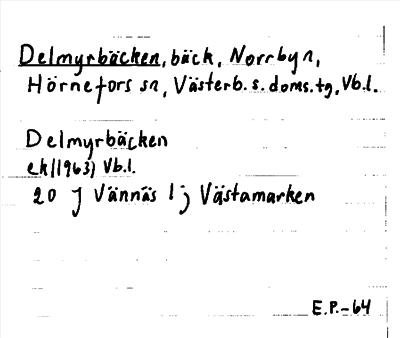 Delmyrbäcken, bäck, Norrbyn,
Hörnefors sn, Västerb. s. doms. tg, Vb.l.
Delmyrbäcken
ek (1963) Vb.l.
20 J Vännäs 1 j Västamarken
E.P.-64